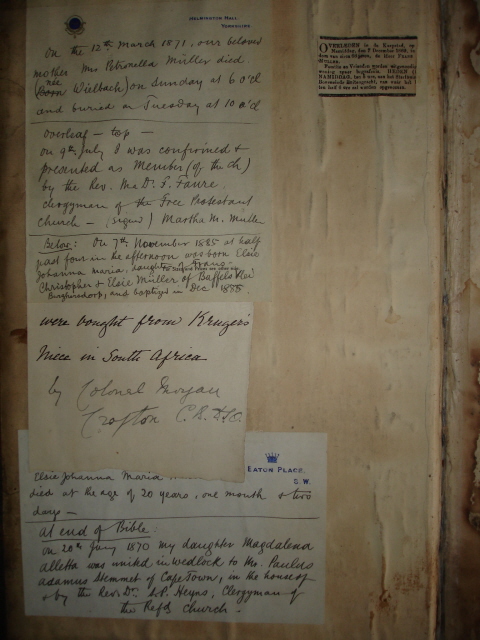 HELMINGTON HALL,
YORKSHIRE.
On the 12th March 1871, our beloved
mother Mrs Petronella Müller died.
(née Wielbach) on Sunday at 6 o'cl
and buried on Tuesday at 10 o'cl
overleaf – top –
on 9th July I was confirmed &
presented as Member (of the ch)
by the Rev. Ma Dr. P. Faure,
clergyman of the Free Protestant
church – (signed) Martha M. Muller
Below: On 7th November 1885 at half
past four in the afternoon was born Elsie
Johanna Maria, daughter of Frans
Christopher & Elsie Müller of Baffels Vlei
Burghersdorp, and baptized in Dec 1885
were bought from Krugers
Niece in South Africa
by Colonel Morgan
Crofton C.B. DSO.
EATON PLACE.
S.W.
Elsie Johanna Maria
died at the age of 20 years, one month & two
days –
At end of Bible:
on 20th July 1870 my daughter Magdalena
Alletta was united in wedlock to Mr. Paulus
Adamus Stemmet of Cape Town, in the house of
& by the Rev. Dr. Heyns, Clergyman of
the Refd church.
OVERLEDEN